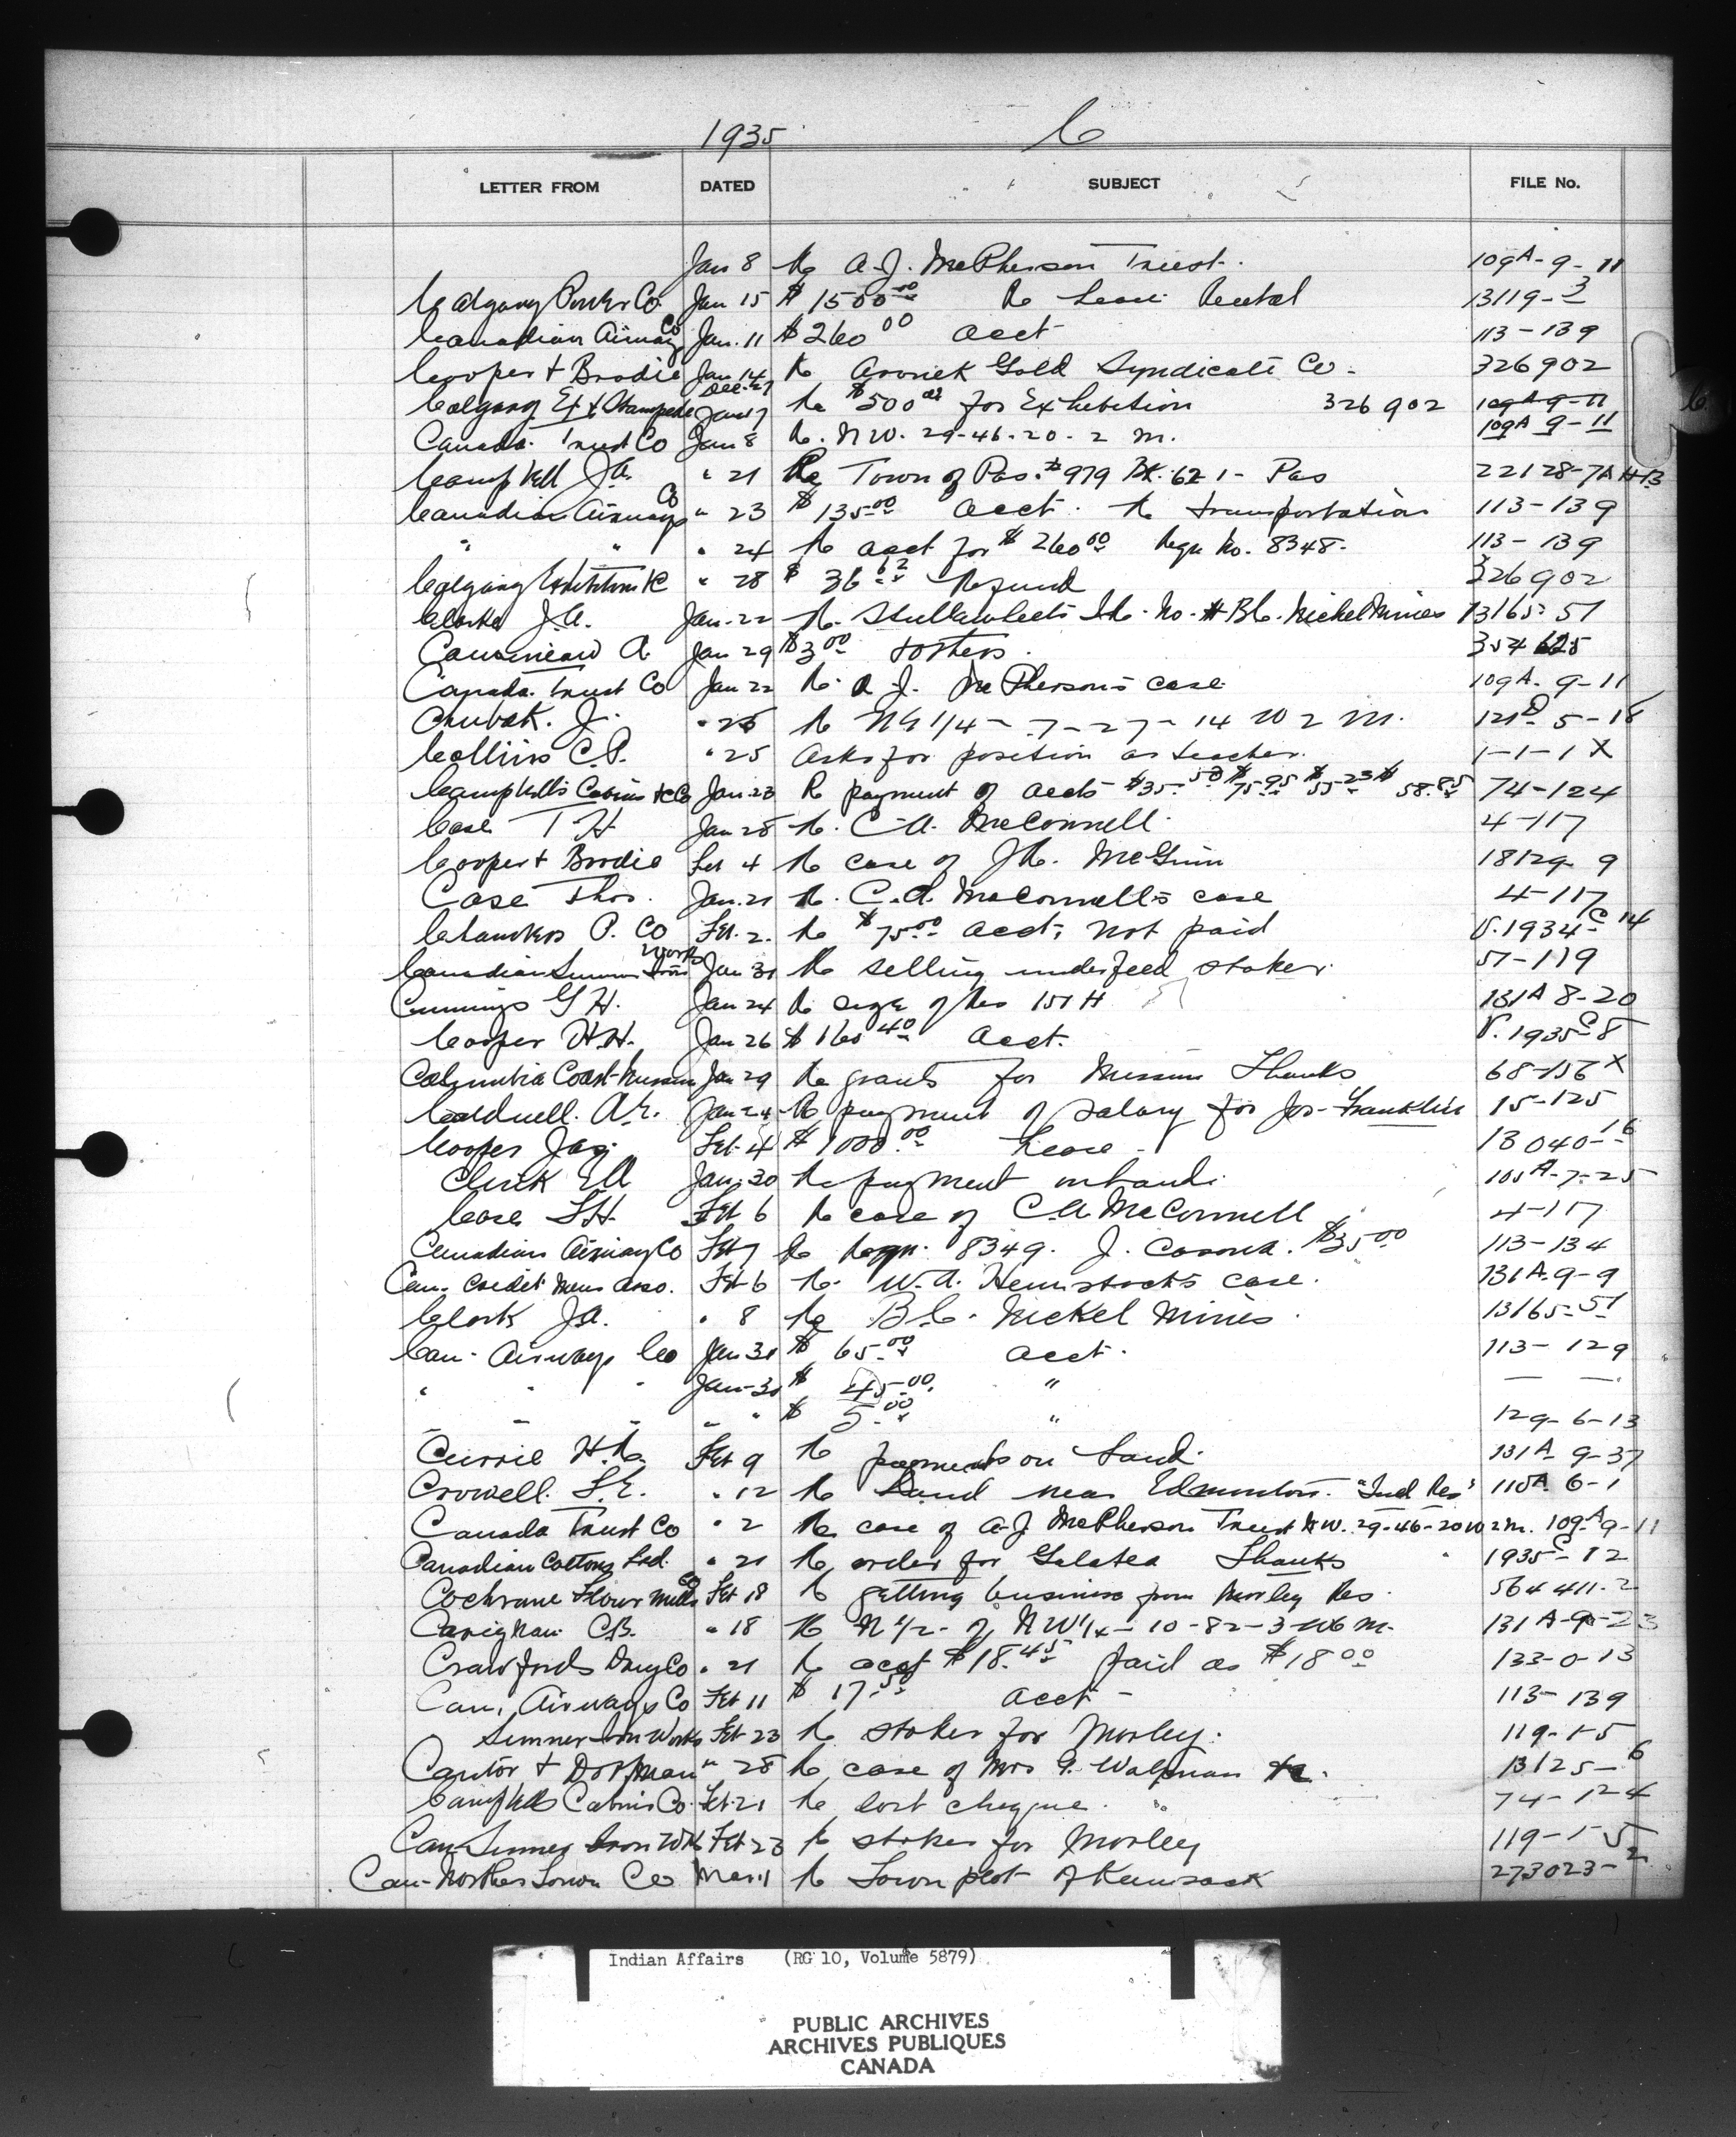 1935 C
LETTER FROM DATED SUBJECT FILE No.
Jan 8 Re A.J. McPherson Trust. 109A-9-11
Calgary Power Co. Jan 15 $1500.00 Re Lease Rental 13119-3
Canadian Airways Co Jan. 11 $260.00 acct 113-139
Cooper & Brodie Jan 14 Re Gold Syndicate Co. 326902
Dec. 27
Calgary Ex & Stampede Jan 17 Re $500.00 for Exhibition 326902 109A-9-11
Canada Trust Co Jan 8 Re. N.W. 29-46-20-2 M. 109A 9-11
Campbell J.A. " 21 Re Town of Pas. #979 Bk. 621- Pas 22128-7A H-13
Canadian Airways Co " 23 $135.00 acct. Re transportation 113-139
" " " 24 Re acct for $260.00 Reqn No. 8348. 113-139
Calgary Exhibition " 28 $36.62 Refund 326902
Clarke J.A. Jan. 22 Re. I.R. No. # B.C. Nickel Mines 13165-51
A. Jan 29 $3.00 354625
Canada Trust Co Jan 22 Re A.J. McPherson's case 109A-9-11
J. " 25 Re N.E 1/4 - 7-27-14 W 2 M. 121D-5-18
Collins C.P. " 25 Asks for position as teacher. 1-1-1X
Campbell's Cabins & Co Jan. 23 Re payment of accts $35.50 $75.95 $55.23 $58.85 74-124
Case T H Jan 28 Re. C.A. McConnell. 4-117
Cooper & Brodie Feb 4 Re case of McGinn 18129-9
Case Thos. Jan. 21 Re. C.A. McConnell's case 4-117
Chambers P. Co Feb. 2. Re $75.00 acct, not paid V.1934-C-14
Canadian Sumner Iron Works Jan 31 Re selling underfeed stoker. 51-119
Cummings G H. Jan 24 Re size of Res 151 H 131A 8-20
Cooper H.H. Jan 26 $160.40 Acct. V.1935-C-8
Columbia Coast Mission Jan 29 Re grants for Mission Thanks 68-156X
Caldwell. A.E. Jan 24 Re payment of salary for Jos. Franklin 15-125
Cooper Jas. Feb. 4 $1000.00 Lease 13040-16
E A Jan. 30 Re payment on land. 105A-7-25
Case T.H. Feb 6 Re case of C.A. McConnell 4-117
Canadian Airway Co Feb 7 Re Reqn. 8349. J. $35.00 113-134
Can. Credit Mens Asso. Feb 6 Re. W.A. Hemstock's case. 131A-9-9
Clark J.A. " 8 Re B.C. Nickel Mines. 13165-51
Can. Airways Co Jan 31 $65.00 acct. 113-129
" " " Jan-30 $45.00 " — —
" " " " " $5.00 " 129-6-13
Currie Feb 9 Re payments on Land. 131A-9-37
Crowell. L.E. " 12 Re Land near Edmonton. "Ind Res" 115A 6-1
Canada Trust Co " 2 Re case of A.J. McPherson Trust N.W. 29-46-20 W 2 M. 109A-9-11
Canadian Cottons Ltd. " 21 Re order for Galatea Thanks 1935-C-12
Cochrane Flour Mills Co Feb 18 Re getting business from Morley Res. 564411-2
Carignan C.B. " 18 Re N 1/2 of N W 1/4 - 10-82-3-W6 M. 131A-9-23
Crawfords Drug Co " 21 Re acct $18.45 Paid as $18.00 133-0-13
Can. Airways Co Feb 11 $17.50 acct 113-139
Sumner Iron Works Feb. 23 Re stoker for Morley. 119-1-5
Cantor & Dorfman " 28 Re case of Mrs G. 13125-6
Campbells Cabins Co. Feb. 21 Re lost cheque. 74-124
Can Sumner Iron Wks Feb 23 Re stoker for Morley 119-1-5
Can-Northern Town Co Mar 1 Re Town plot of Kamsack 273023-2
Indian Affairs (RG 10, Volume 5879)
PUBLIC ARCHIVES
ARCHIVES PUBLIQUES
CANADA